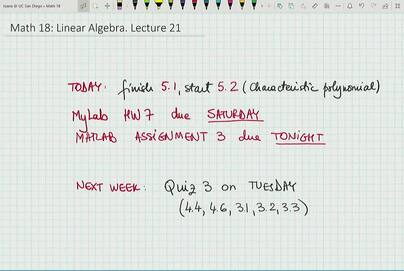 Ioana @ UC San Diego » Math 18
Math 18: Linear Algebra. Lecture 21
TODAY: finish 5.1, start 5.2 (characteristic polynomial)
MyLab HW 7 due SATURDAY
MATLAB ASSIGNMENT 3 due TONIGHT
NEXT WEEK: Quiz 3 on TUESDAY
(4.4, 4.6, 3.1, 3.2, 3.3)